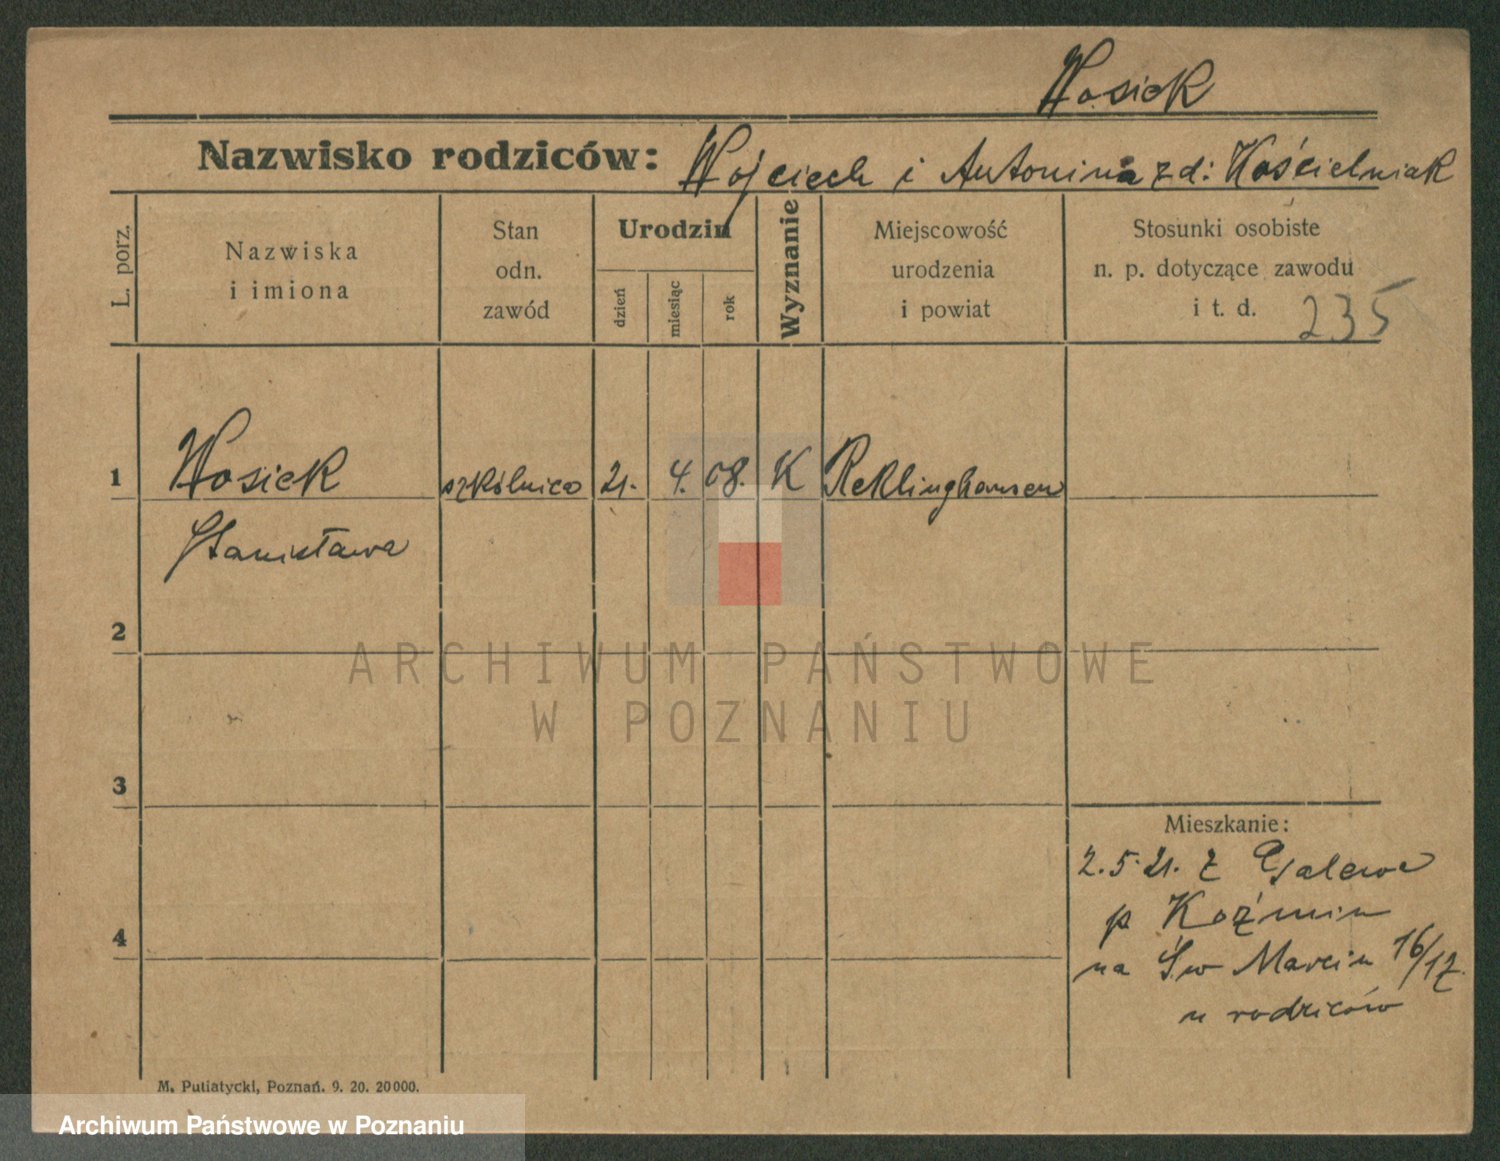 Wosiek
Nazwisko rodziców: Wojciech i Antonina z d: Kościelniak
L. porz.
Nazwiska
i imiona
Stan
odn.
zawód
Urodzin
dzień
miesiąc
rok
Wyznanie
Miejscowość
urodzenia
i powiat
Stosunki osobiste
n. p. dotyczące zawodu
i t. d.
235
1 Wosiek szkólnica 21. 4. 08. K Reklinghausen
Stanisława
2
ARCHIWUM PAŃSTWOWE
W POZNANIU
3
Mieszkanie:
2.5.21. z Galewa
p Koźmin
4
na Św Marcin 16/17.
u rodziców
M. Putiatycki, Poznań. 9. 20. 20000.
Archiwum Państwowe w Poznaniu